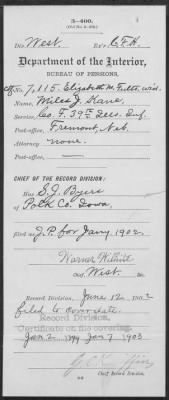 3-400.
Div. West. Ex'r C.F.H.
Department of the Interior,
BUREAU OF PENSIONS,
No. 7,115. Elizabeth M. Fults, wid.
Name, Miles J. Kane,
Service, Co. F. 39th Ills. Inf.
Post-office, Fremont, Neb.
Attorney none.
Post-office,
CHIEF OF THE RECORD DIVISION:
Has S.J. Byers
of Polk Co. Iowa
filed as J.P. for Jany 1902.
Warner Wilhite
Chief, West. Div.
Record Division, June 12, 1902
filed to cover date.
Record Division.
Certificate on file covering.
Jan 2, 1899 Jan 7 1903
Chief Record Division.